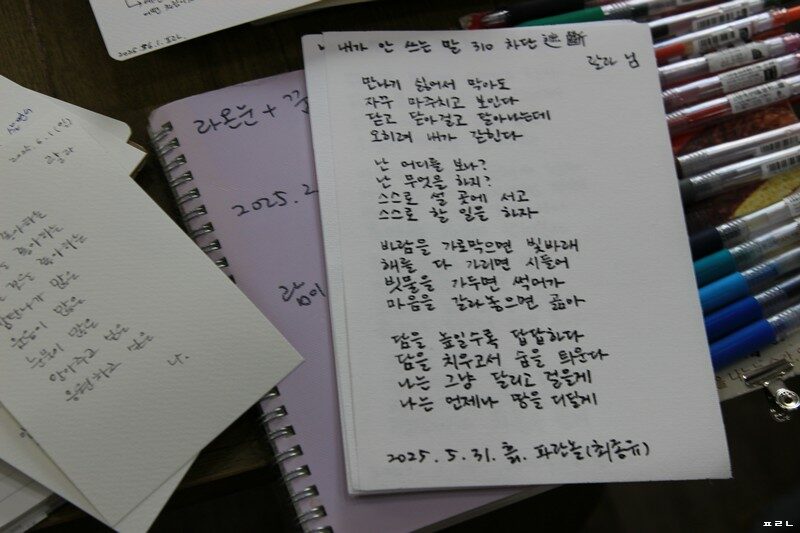 내가 안 쓰는 말 310 차단 遮斷
랄라 님
만나기 싫어서 막아도
자꾸 마주치고 보인다
닫고 닫아걸고 달아나는데
오히려 내가 갇힌다
난 어디를 보나?
난 무엇을 하지?
스스로 설 곳에 서고
스스로 할 일을 하자
바람을 가로막으면 빛바래
해를 다 가리면 시들어
빗물을 가두면 썩어가
마음을 갈라놓으면 곪아
담을 높일수록 답답하다
담을 치우고서 숨을 틔운다
나는 그냥 달리고 걸을게
나는 언제나 땅을 디딜게
2025.5.31.흙. 파란놀(최종규)
라온눈 + 꿈
2025.2
람이
랄라
많은
눈물이 많은
안아주고 싶은
응원하고 싶은
나.
ㅍㄹㄴ